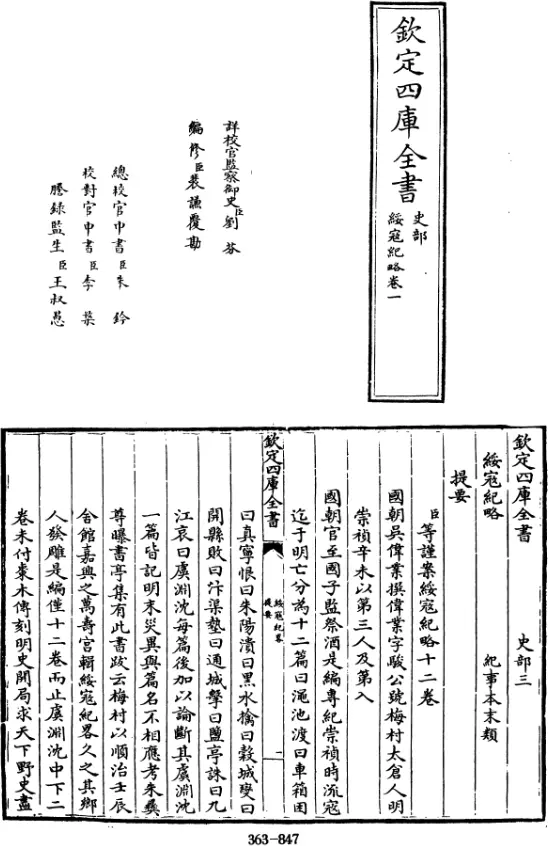 欽定四庫全書
史部
綏寇紀略卷一
詳校官監察御史臣劉芬
編修臣裴謙覆勘
總校官中書臣朱鈐
校對官中書臣李楘
謄錄監生臣王叔愚
欽定四庫全書
史部三
綏寇紀略
紀事本末類
提要
臣等謹案綏寇紀略十二卷
國朝吳偉業撰偉業字駿公號梅村太倉人明
崇禎辛未以第三人及第入
國朝官至國子監祭酒是編專紀崇禎時流寇
迄于明亡分為十二篇曰澠池渡曰車箱困
欽定四庫全書
綏寇紀略
提要
一
曰真寧恨曰朱陽潰曰黑水擒曰穀城變曰
開縣敗曰汴渠墊曰通城擊曰鹽亭誅曰九
江哀曰虞淵沈每篇後加以論斷其虞淵沈
一篇皆記明末災異與篇名不相應考朱彝
尊曝書亭集有此書跋云梅村以順治壬辰
舍館嘉興之萬壽宮輯綏寇紀畧久之其鄉
人發雕是編僅十二卷而止虞淵沈中下二
卷未付棗木傳刻明史開局求天下野史盡
363-847